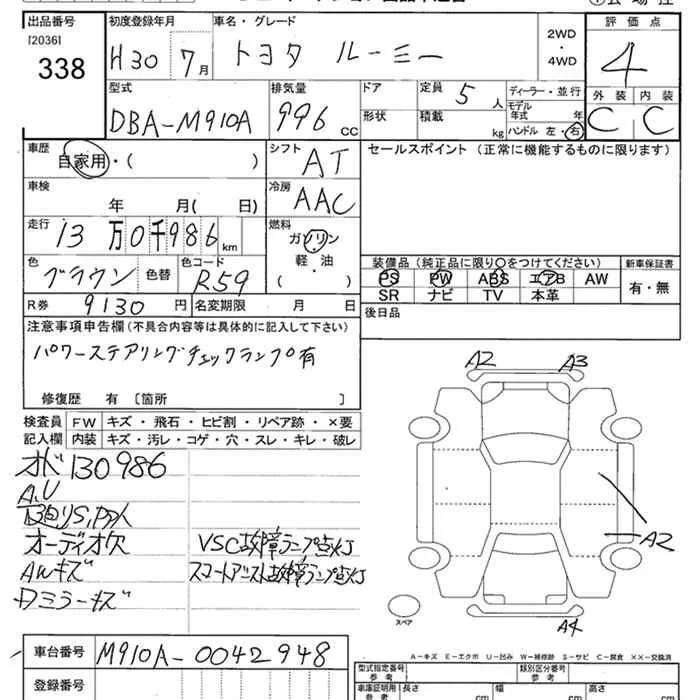 出品番号 初度登録年月 車名・グレード 評価点
[2036] 338 H30 7月 トヨタ ルーミー 2WD・4WD 4
型式 排気量 ドア 定員 5人 ディーラー・並行 外装 内装
DBA-M910A 996cc 形状 積載 kg モデル年式 年 ハンドル 左・右 C C
車歴 自家用・( ) シフト AT セールスポイント (正常に機能するものに限ります)
車検 年 月(日) 冷房 AAC
走行 13万0千986km 燃料 ガソリン
軽・油
( )
装備品 (純正品に限り○をつけてください) 新車保証書
色 ブラウン 色替 色コード R59 PS PW ABS エアB AW 有・無
SR ナビ TV 本革
R券 9130円 名変期限 月 日 後日品
注意事項申告欄(不具合内容等は具体的に記入して下さい)
パワーステアリングチェックランプ有
修復歴 有 [箇所 ]
A2 A3
検査員 FW キズ・飛石・ヒビ割・リペア跡・×要
記入欄 内装 キズ・汚レ・コゲ・穴・スレ・キレ・破レ
130986
A,U
オーディオ欠 VSC故障ランプ点灯
A2
AWキズ スマートアシスト故障ランプ点灯
ミラーキズ
スペア
A4
車台番号 M910A-0042948
A-キズ E-エクボ U-凹み W-補修跡 S-サビ C-腐食 ××-交換済
登録番号
型式指定番号 参考 類別区分番号 参考
車庫証明用 参考 長さ cm 幅 cm 高さ cm